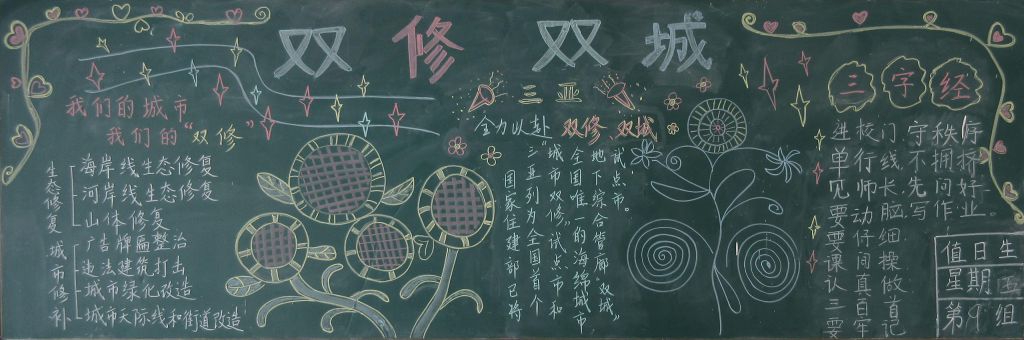 双修 双城
三亚
全力以赴 双修 双城
我们的城市
我们的“双修”
生态修复
海岸线生态修复
河岸线生态修复
山体修复
城市修补
广告牌匾整治
违法建筑打击
城市绿化改造
城市天际线和街道改造
国家住建部已将
三亚列为全国首个
“城市双修”试点市和
全国唯一的海绵城市
地下综合管廊“双城”
试点市。
三字经
进校门守秩序
单行线不拥挤
见师长先问好
要动脑写作业。
要仔细
课间操
认真做
三自首
要牢记
值日生
星期
第9组